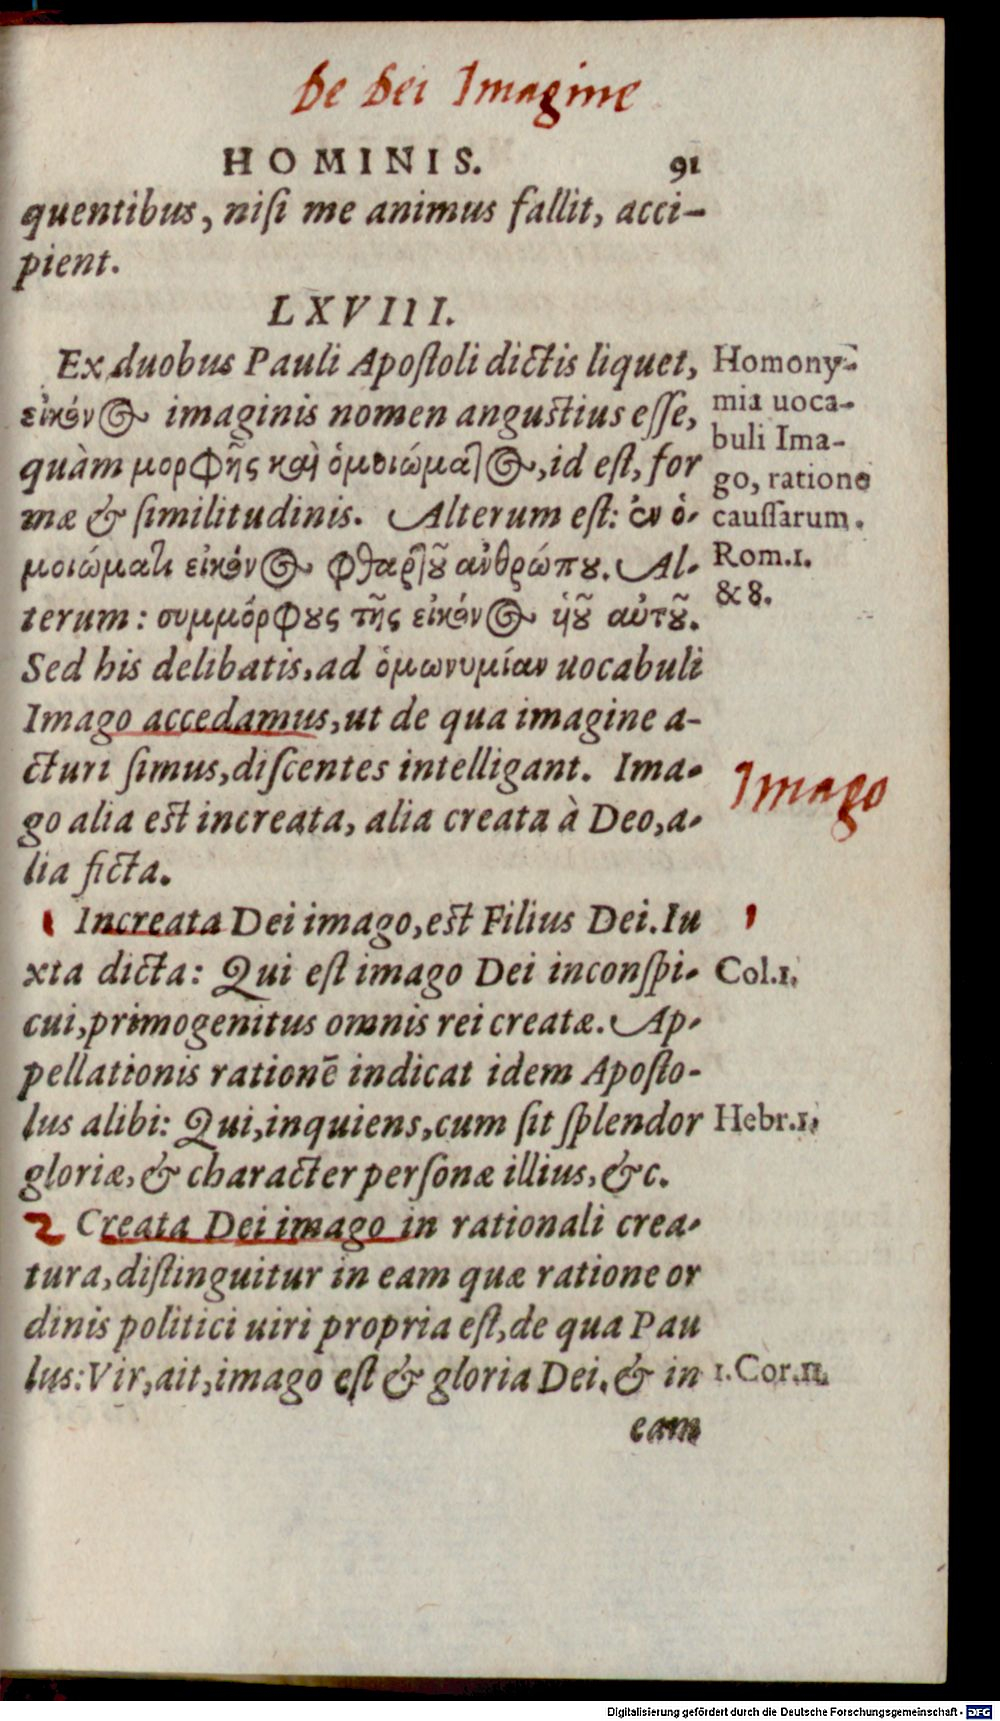 De Dei Imagine
HOMINIS. 91
quentibus, niſi me animus fallit, acci-
pient.
LXVIII.
Ex duobus Pauli Apoſtoli dictis liquet,
εἰκόνος imaginis nomen anguſtius eſſe,
quàm μορφῆς καὶ ὁμοιώματος, id eſt, for
mæ & ſimilitudinis. Alterum eſt: ἐν ὁ-
μοιώματι εἰκόνος φθαρτοῦ ἀνθρώπου. Al-
terum: συμμόρφους τῆς εἰκόνος ὑοῦ αὐτοῦ.
Sed his delibatis, ad ὁμωνυμίαν uocabuli
Imago accedamus, ut de qua imagine a-
cturi ſimus, diſcentes intelligant. Ima-
go alia eſt increata, alia creata à Deo, a-
lia ficta.
1 Increata Dei imago, eſt Filius Dei. Iu
xta dicta: Qui eſt imago Dei inconſpi-
cui, primogenitus omnis rei creatæ. Ap-
pellationis rationē indicat idem Apoſto-
lus alibi: Qui, inquiens, cum ſit ſplendor
gloriæ, & character perſonæ illius, &c.
2 Creata Dei imago in rationali crea-
tura, diſtinguitur in eam quæ ratione or
dinis politici uiri propria eſt, de qua Pau
lus: Vir, ait, imago eſt & gloria Dei. & in
eam
Homony-
mia uoca-
buli Ima-
go, ratione
cauſſarum.
Rom.1.
& 8.
Imago
1
Col.1.
Hebr.1.
1. Cor.11.
Digitalisierung gefördert durch die Deutsche Forschungsgemeinschaft - DFG